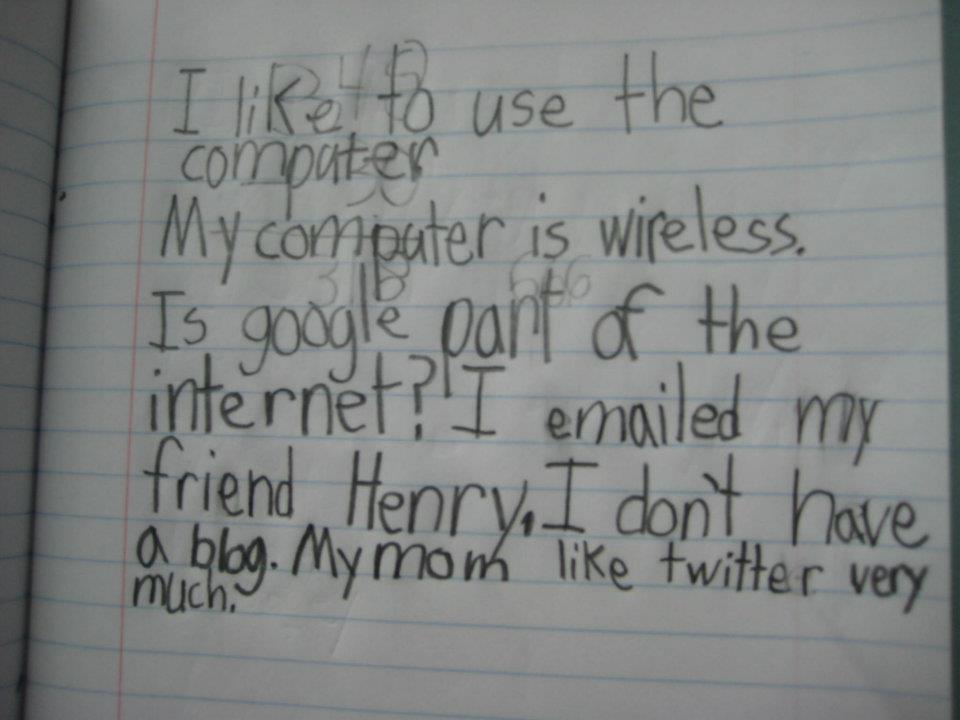 I like to use the
computer
My computer is wireless.
Is google part of the
internet? I emailed my
friend Henry. I don't have
a blog. My mom like twitter very
much.